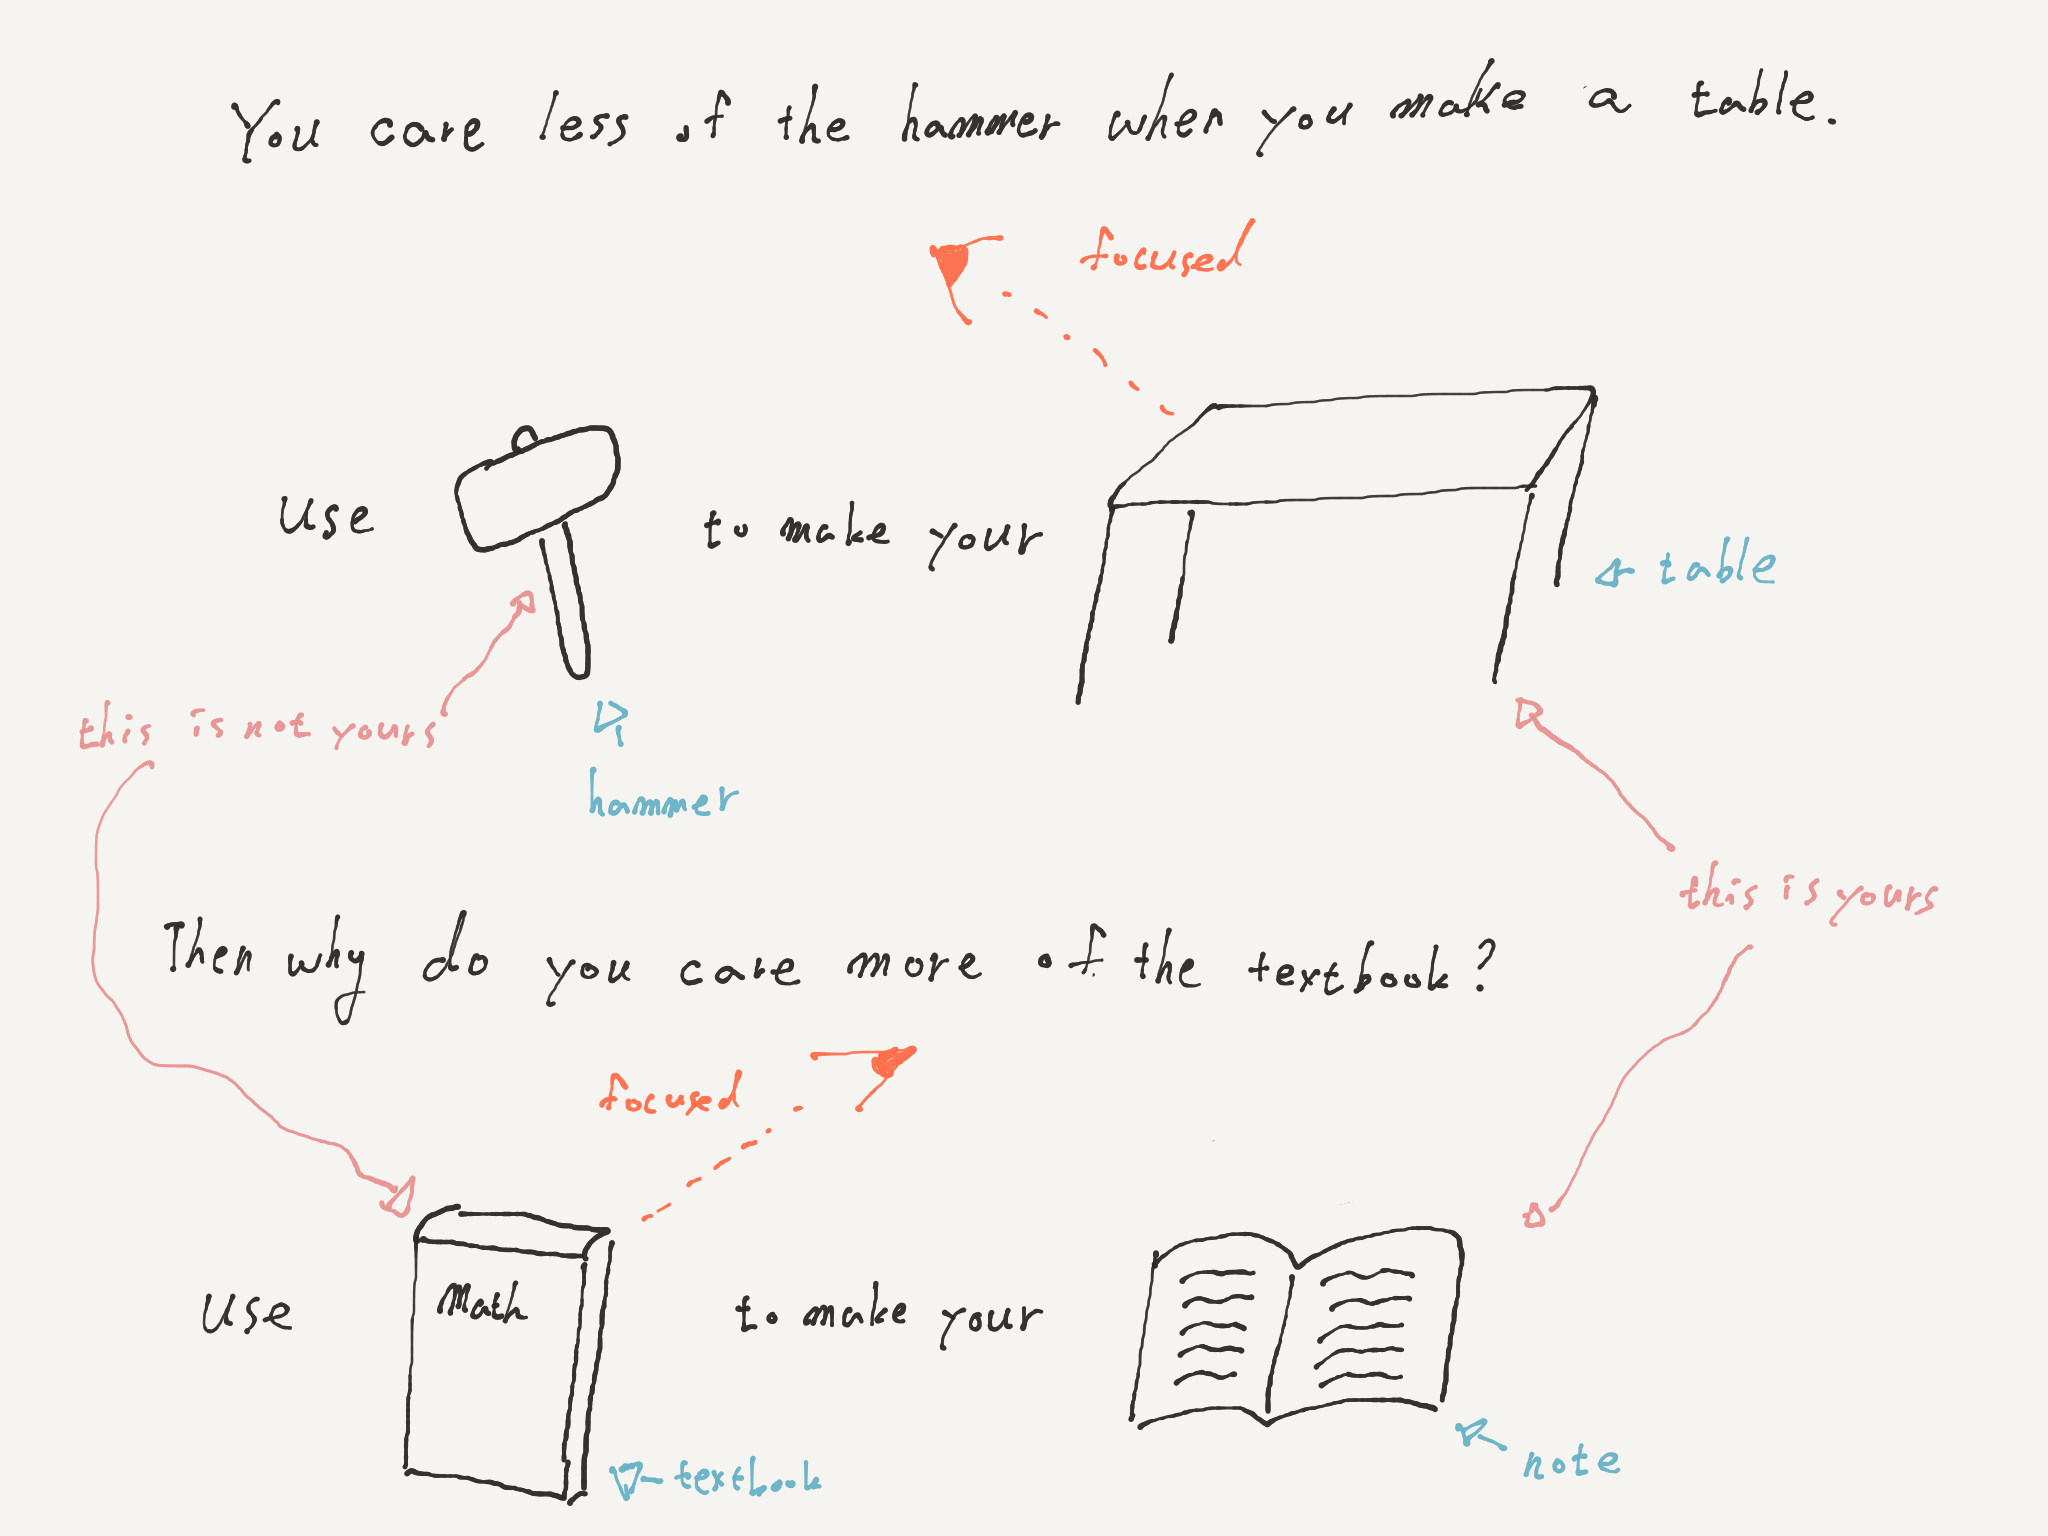 You care less of the hammer when you make a table.
focused
use to make your
table
this is not yours
hammer
this is yours
Then why do you care more of the textbook?
focused
Math
use to make your
note
textbook